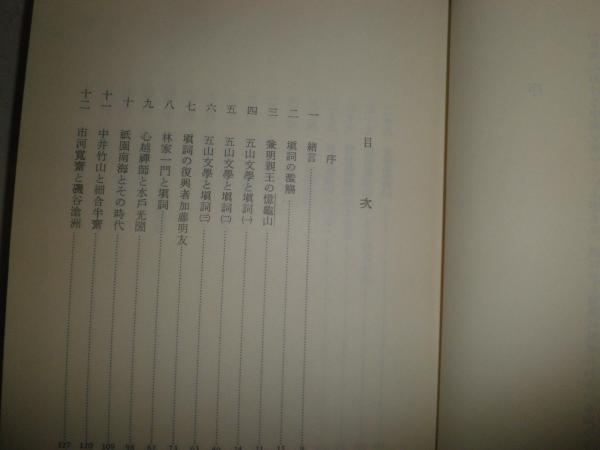 目次
序
一 緒言
二 塡詞の濫觴
三 兼明親王の憶龜山
四 五山文學と塡詞㈠
五 五山文學と塡詞㈡
六 五山文學と塡詞㈢
七 塡詞の復興者加藤明友
八 林家一門と塡詞
九 心越禪師と水戶光圀
十 祇園南海とその時代
十一 中井竹山と細合半齋 109
十二 市河寬齋と磯谷滄洲 127